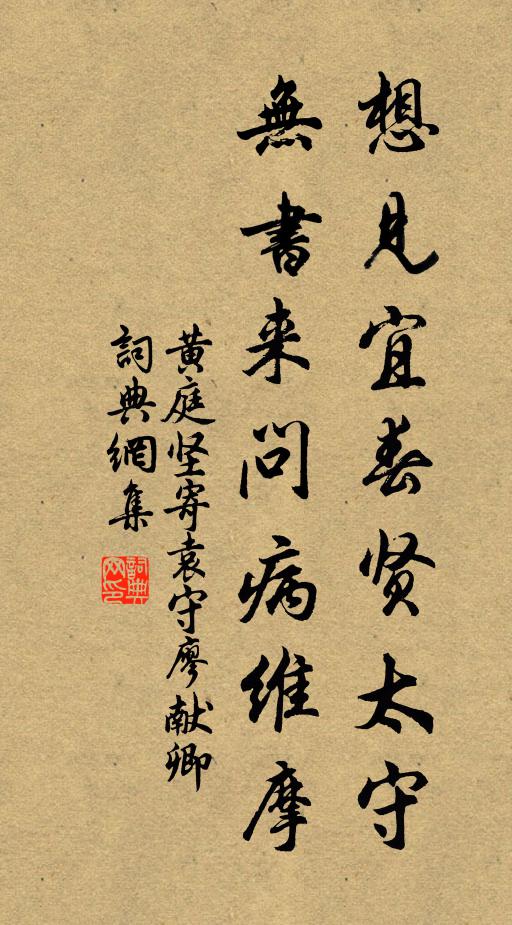 想見宜春贤太守
無書来問病維摩
黄庭坚寄袁守廖献卿
詞典網集
詞典网印